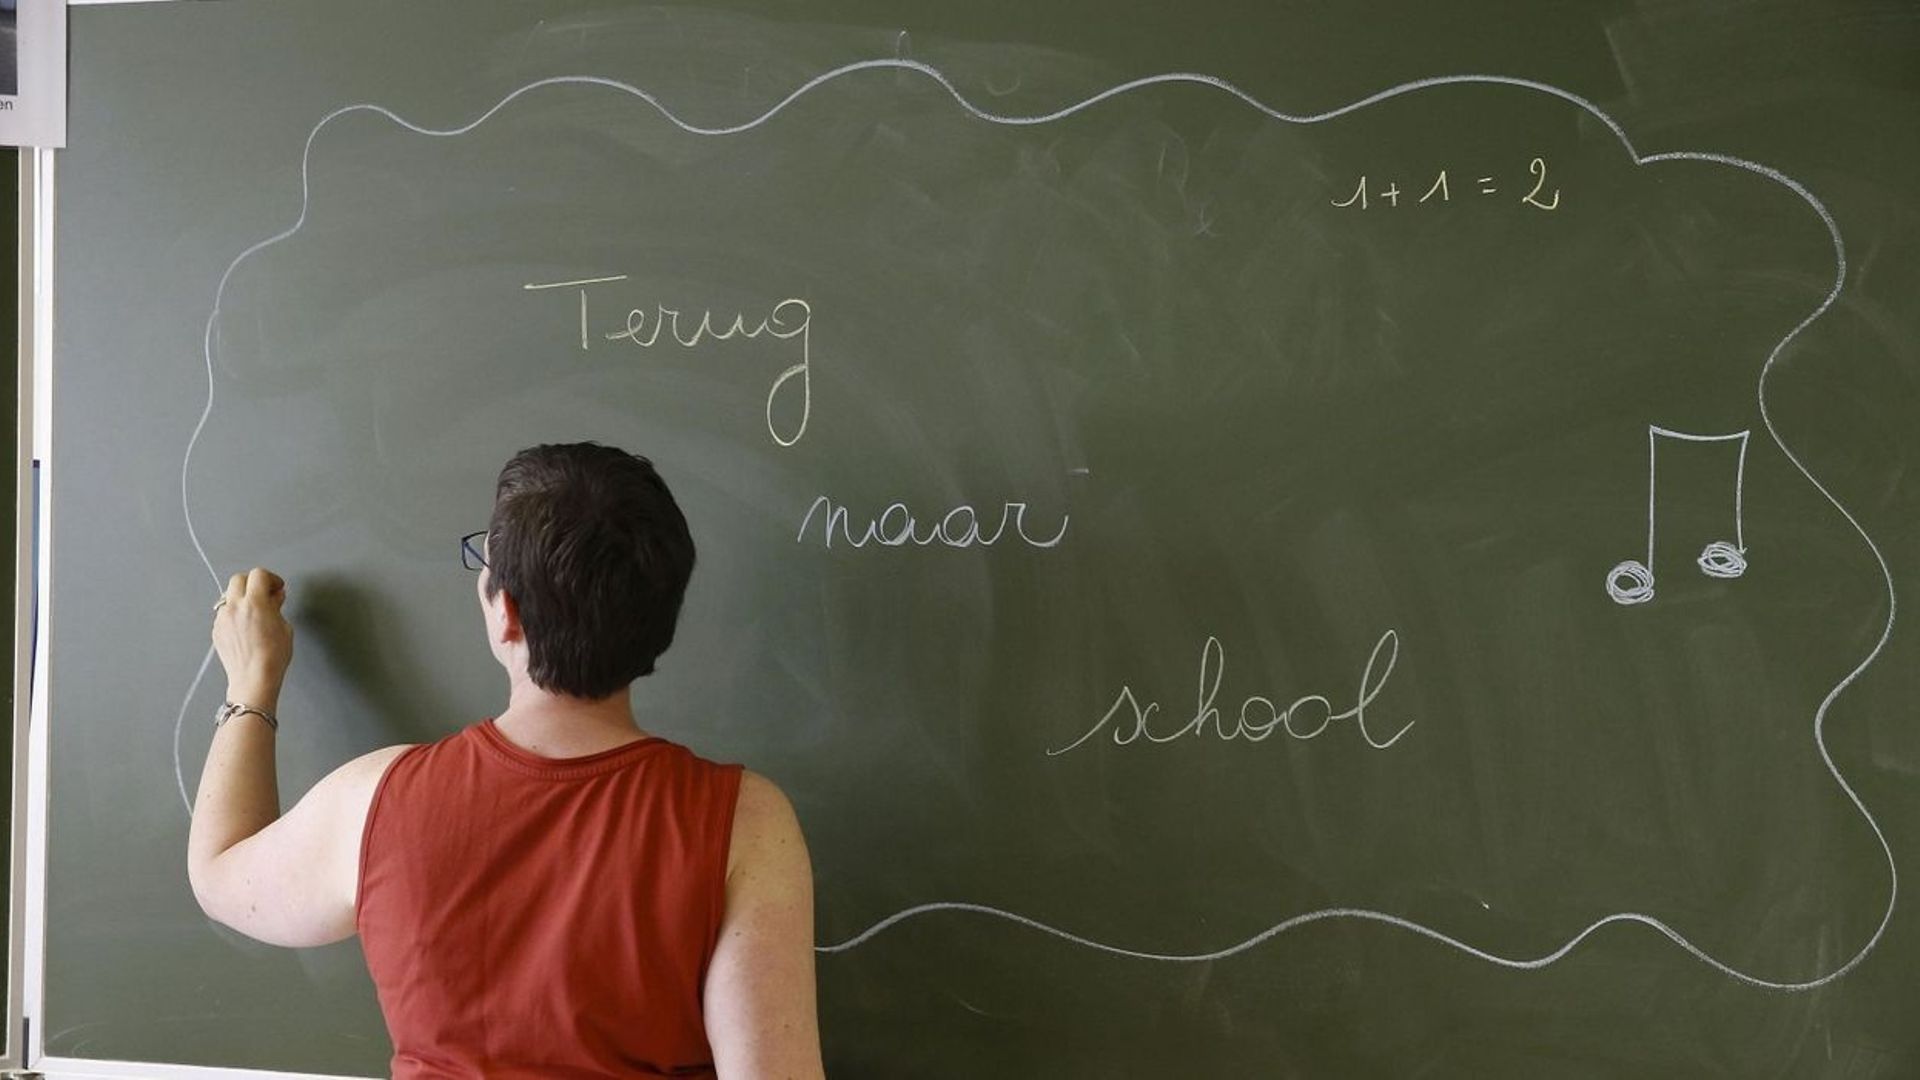 en
1 + 1 = 2
Terug
naar
school